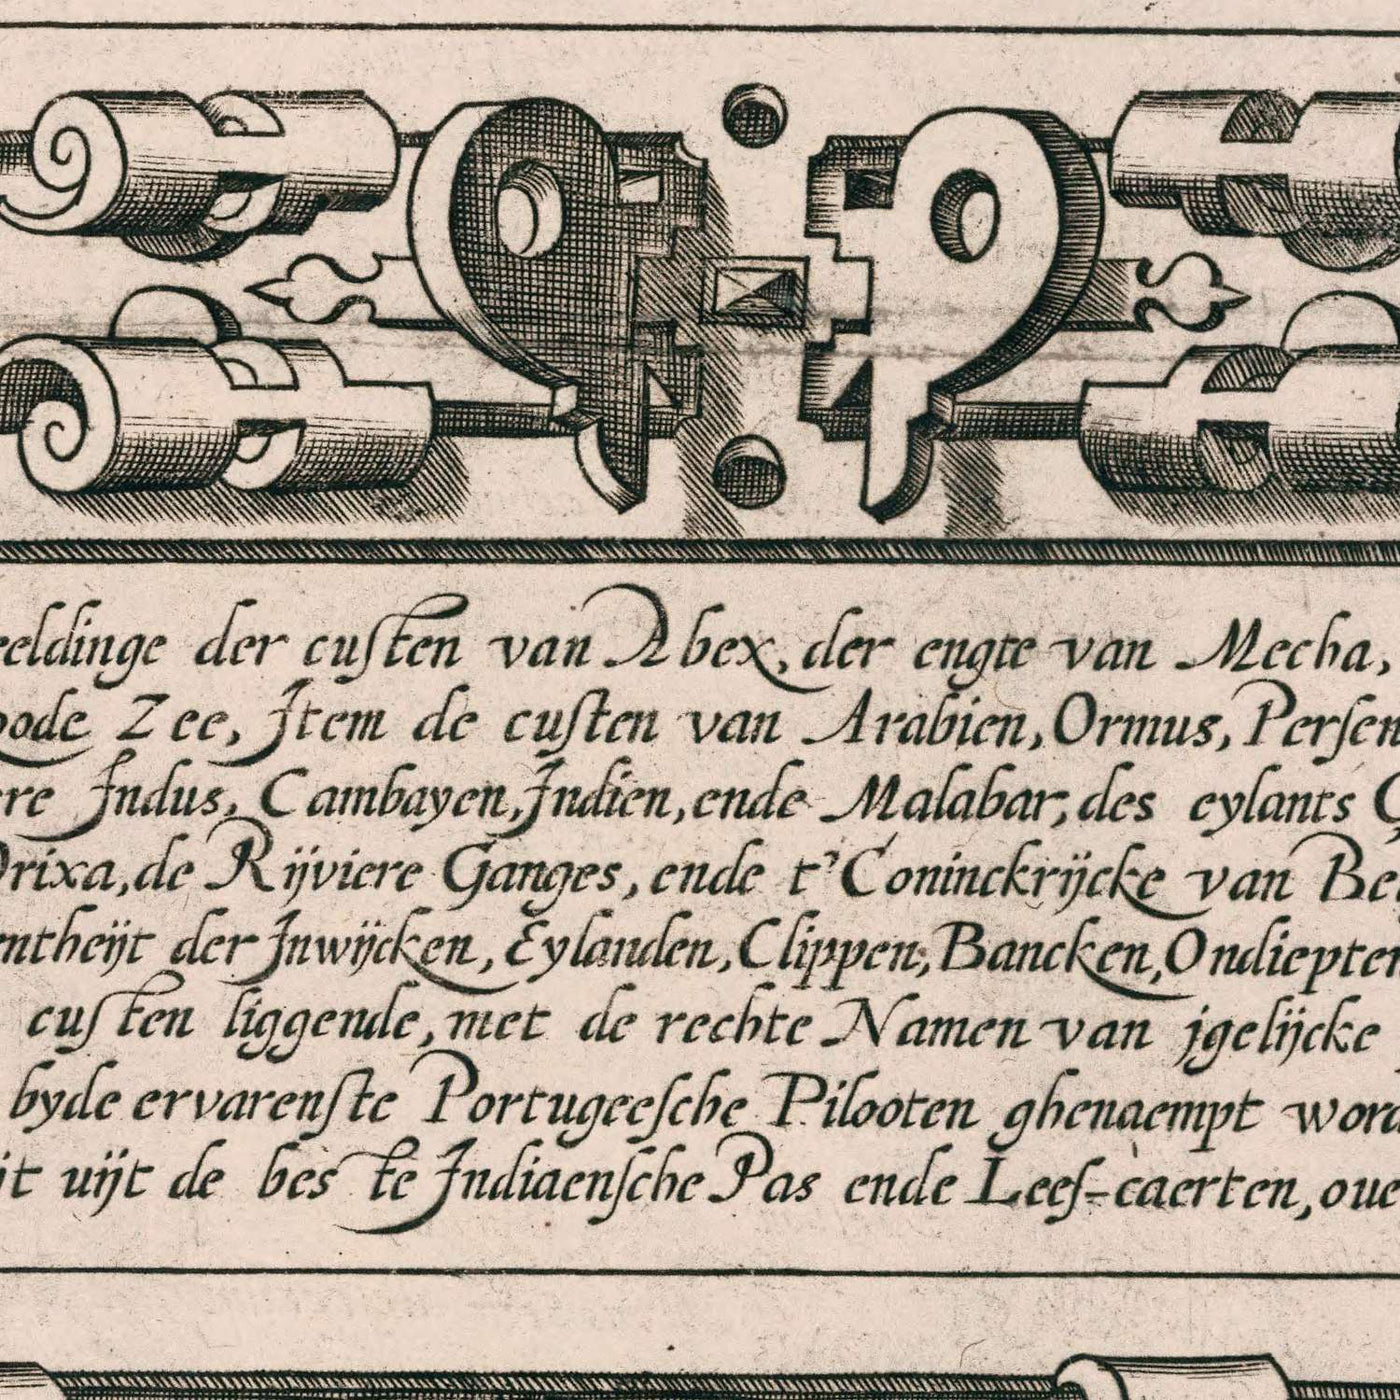 eeldinge der cuſten van Abex, der engte van Mecha,
oode Zee, Jtem de cuſten van Arabien, Ormus, Perſen
ere Jndus, Cambayen, Jndien, ende Malabar, des eylants
Orixa, de Rijviere Ganges, ende t'Coninckrijcke van Be
ntheijt der Jnwijcken, Eylanden, Clippen, Bancken, Ondiepten
cuſten liggende, met de rechte Namen van jgelijcke
byde ervarenſte Portugeeſche Pilooten ghenaempt word
it uijt de beste Jndiaenſche Pas ende Leeſ-caerten, oue